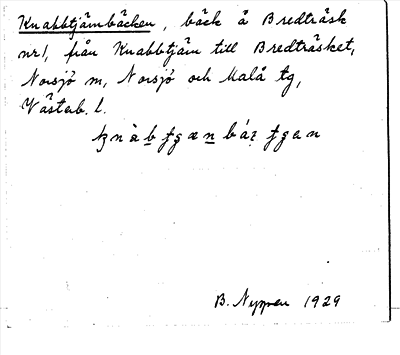 Knabbtjärnbäcken, bäck å Bredträsk
nr 1, från Knabbtjärn till Bredträsket,
Norsjö sn, Norsjö och Malå tg,
Västerb. l.
B. Nyman 1929